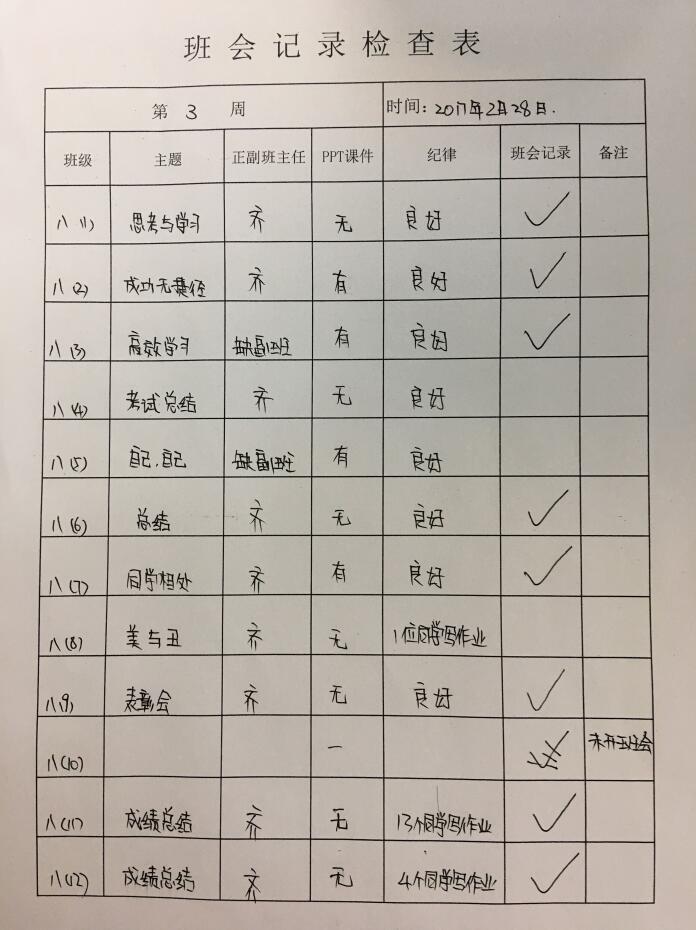 班会记录检查表
第 3 周 时间：2017年2月28日.
班级 主题 正副班主任 PPT课件 纪律 班会记录 备注
八(1) 思考与学习 齐 无 良好 ✓
八(2) 成功无捷径 齐 有 良好 ✓
八(3) 高效学习 缺副班 有 良好 ✓
八(4) 考试总结 齐 无 良好
八(5) 自己.自己 缺副班 有 良好
八(6) 总结 齐 无 良好 ✓
八(7) 同学相处 齐 有 良好 ✓
八(8) 美与丑 齐 无 1位同学写作业
八(9) 表彰会 齐 无 良好 ✓
八(10) — 未开班会
八(11) 成绩总结 齐 无 13个同学写作业 ✓
八(12) 成绩总结 齐 无 4个同学写作业 ✓